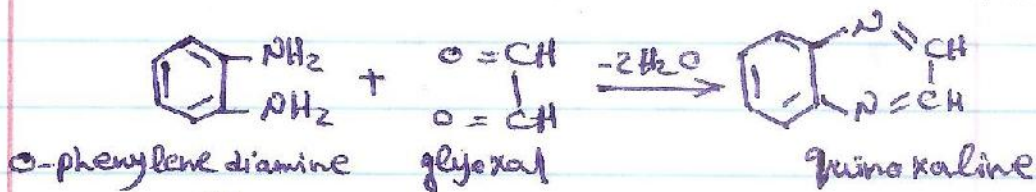 NH2 O=CH -2H2O N CH
+
NH2 O=CH N=CH
o-phenylene diamine glyoxal Quinoxaline